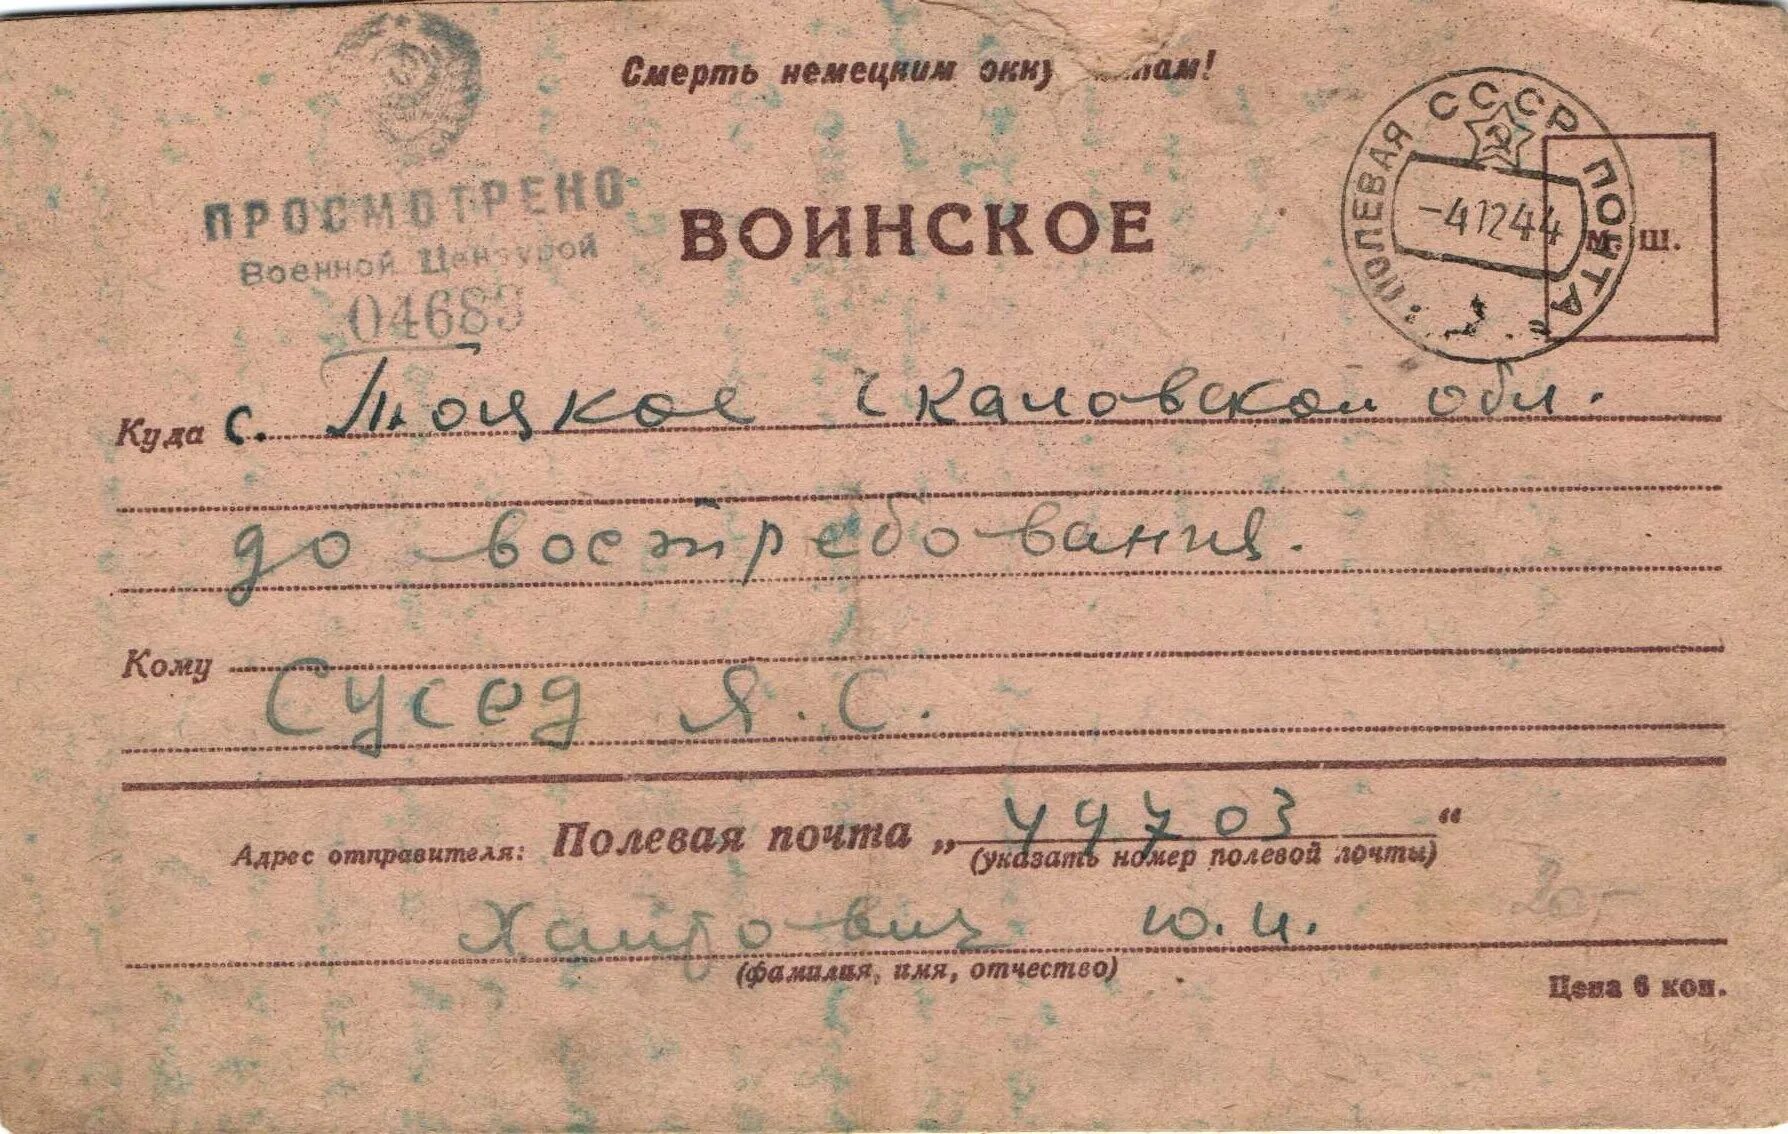 Смерть немецким окку
ПРОСМОТРЕНО
Военной Цензурой
04689
ВОИНСКОЕ
ПОЛЕВАЯ СССР ПОЧТА
-4 12 44
м. ш.
Куда с. Тоцкое Чкаловской обл.
до востребования.
Кому
Сусед Я. С.
Адрес отправителя: Полевая почта „49703“
(указать номер полевой почты)
Ю. И.
(фамилия, имя, отчество)
20,-
Цена 6 коп.